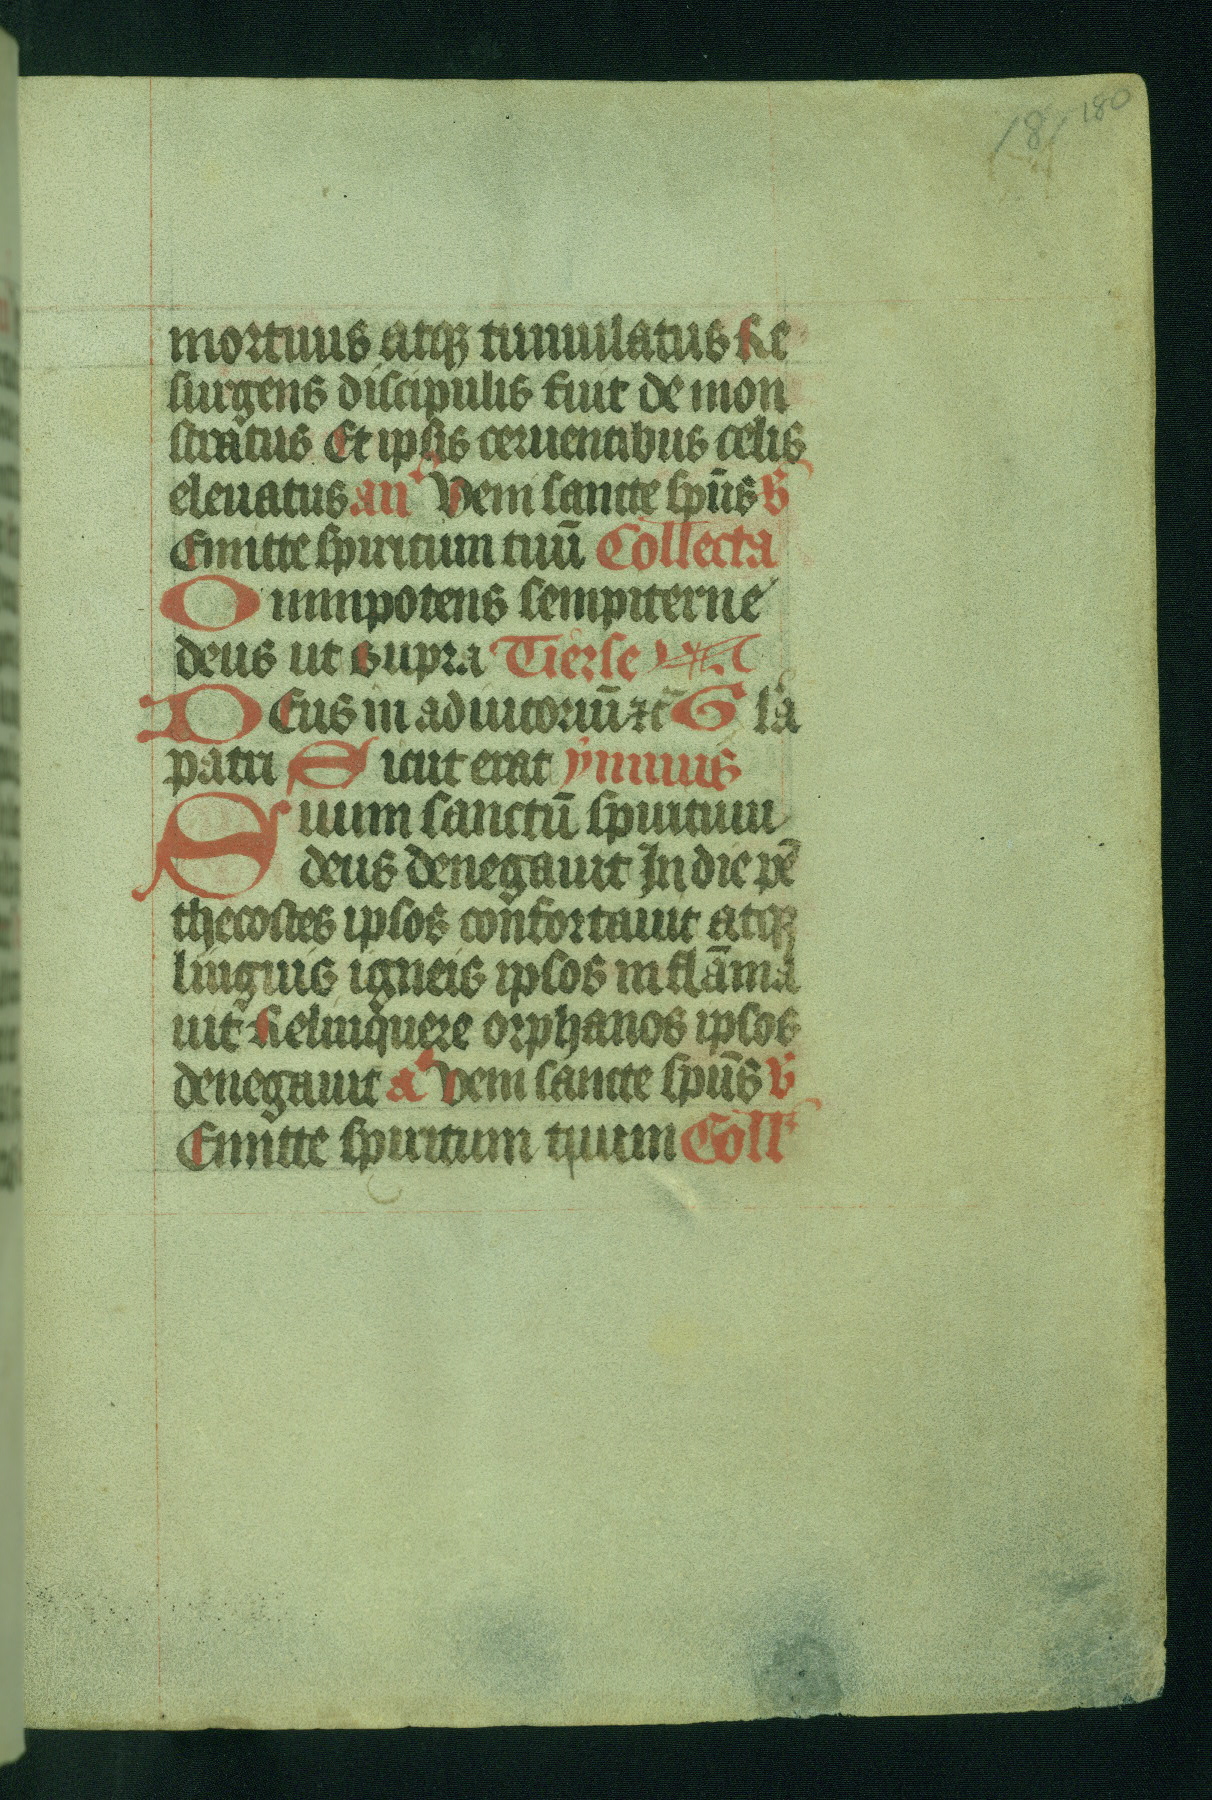 181 180
mortuus atqꝫ tumulatus Re
surgens discipulis fuit demon
stratus Et ipsis cernentibus celis
eleuatus anᵃ Veni sancte spūs ꝟ
Emitte spiritum tuū Collecta
Omnipotens sempiterne
deus ut supra Tierse
Deus in adiutoriū ⁊c̄ Gl'a
patri Sicut erat ymnus
Suum sanctū spiritum
deus denegauit In die pē
thecostes ipsos confortauit atqꝫ
linguis igneis ipsos inflāma
uit Relinquere orphanos ipsos
denegauit aᵃ Veni sancte spūs ꝟ
Emitte spiritum tuum Coll'